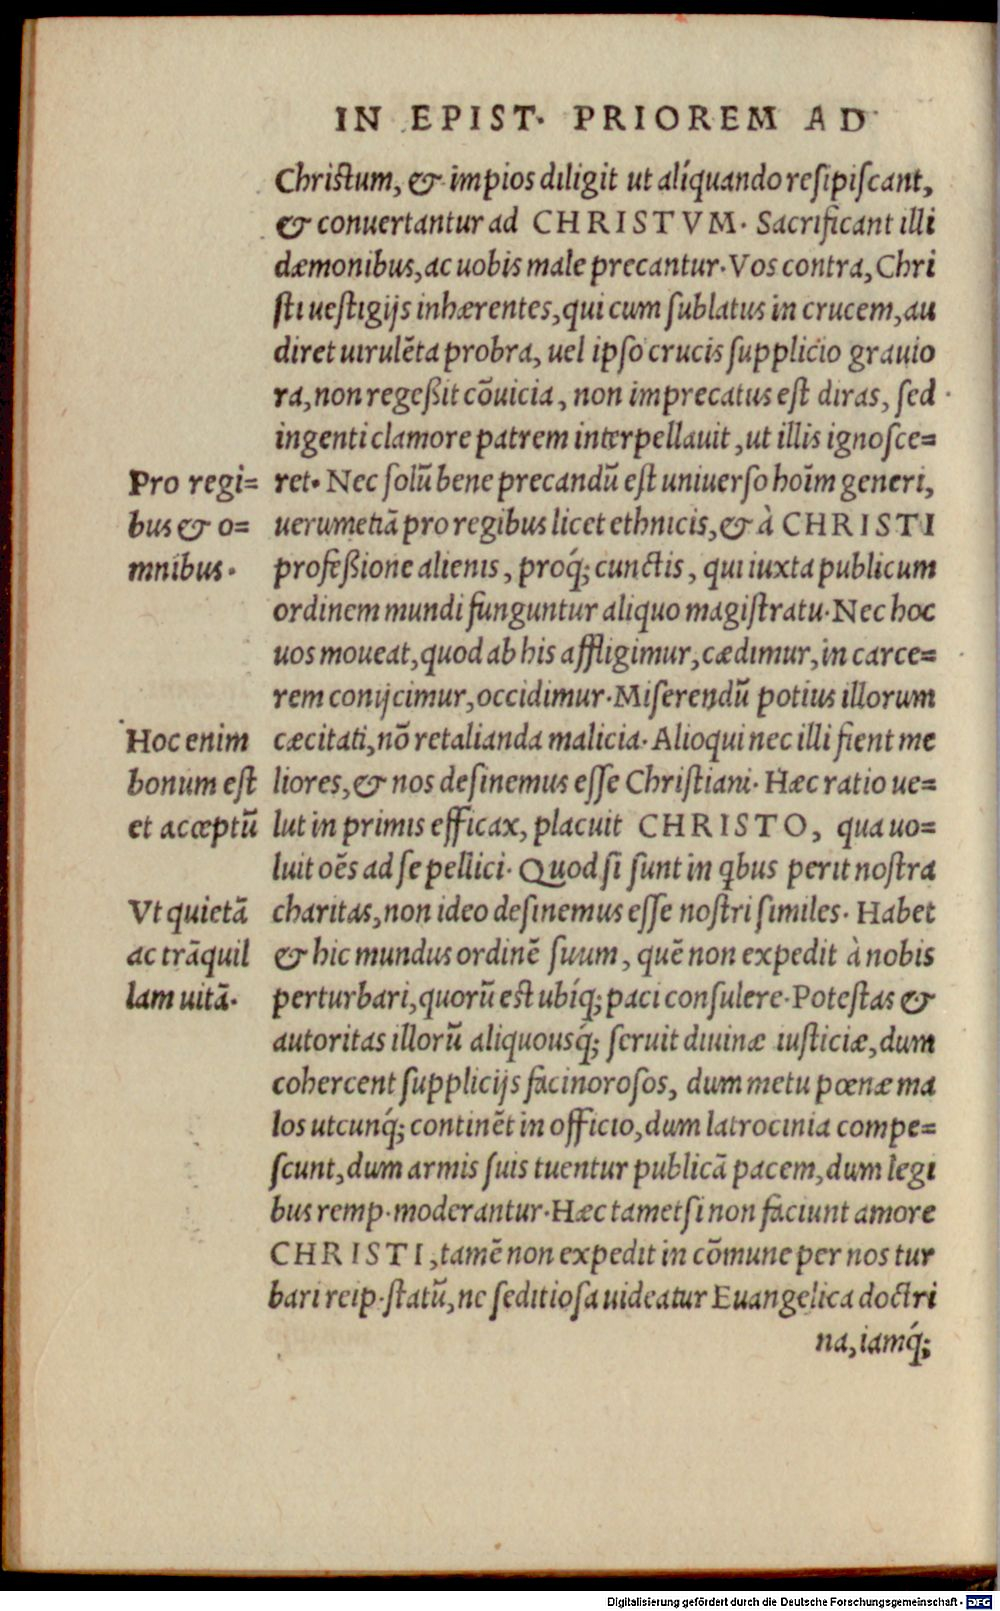 IN EPIST. PRIOREM AD
Christum, & impios diligit ut alíquando resipiscant,
& conuertantur ad CHRISTVM. Sacrificant illi
dæmonibus, ac uobis male precantur. Vos contra, Chri
sti uestigijs inhærentes, qui cum sublatus in crucem, au
diret uirulēta probra, uel ipso crucis supplicio grauio
ra, non regeßit cōuicia, non imprecatus est diras, sed
ingenti clamore patrem interpellauit, ut illis ignosce=
Pro regi= ret. Nec solū bene precandū est uniuerso hoīm generi,
bus & o= uerumetiā pro regibus licet ethnicis, & à CHRISTI
mnibus. profeßione alienis, proq́; cunctis, qui iuxta publicum
ordinem mundi funguntur aliquo magistratu. Nec hoc
uos moueat, quod ab his affligimur, cædimur, in carce=
rem conijcimur, occidimur. Miserendū potius illorum
Hoc enim cæcitati, nō retalianda malicia. Alioqui nec illi fient me
bonum est liores, & nos desinemus esse Christiani. Hæc ratio ue=
et acceptū lut in primis efficax, placuit CHRISTO, qua uo=
luit oēs ad se pellici. Quod si sunt in qbus perit nostra
Vt quietā charitas, non ideo desinemus esse nostri similes. Habet
ac trāquil & hic mundus ordinē suum, quē non expedit à nobis
lam uitā. perturbari, quorū est ubiq́; paci consulere. Potestas &
autoritas illorū aliquousq́; seruit diuinæ iusticiæ, dum
cohercent supplicijs facinorosos, dum metu pœnæ ma
los utcunq́; continēt in officio, dum latrocinia compe=
scunt, dum armis suis tuentur publicā pacem, dum legi
bus remp. moderantur. Hæc tametsi non faciunt amore
CHRISTI, tamē non expedit in cōmune per nos tur
bari reip. statū, ne seditiosa uideatur Euangelica doctri
na, iamq́;
Digitalisierung gefördert durch die Deutsche Forschungsgemeinschaft - DFG